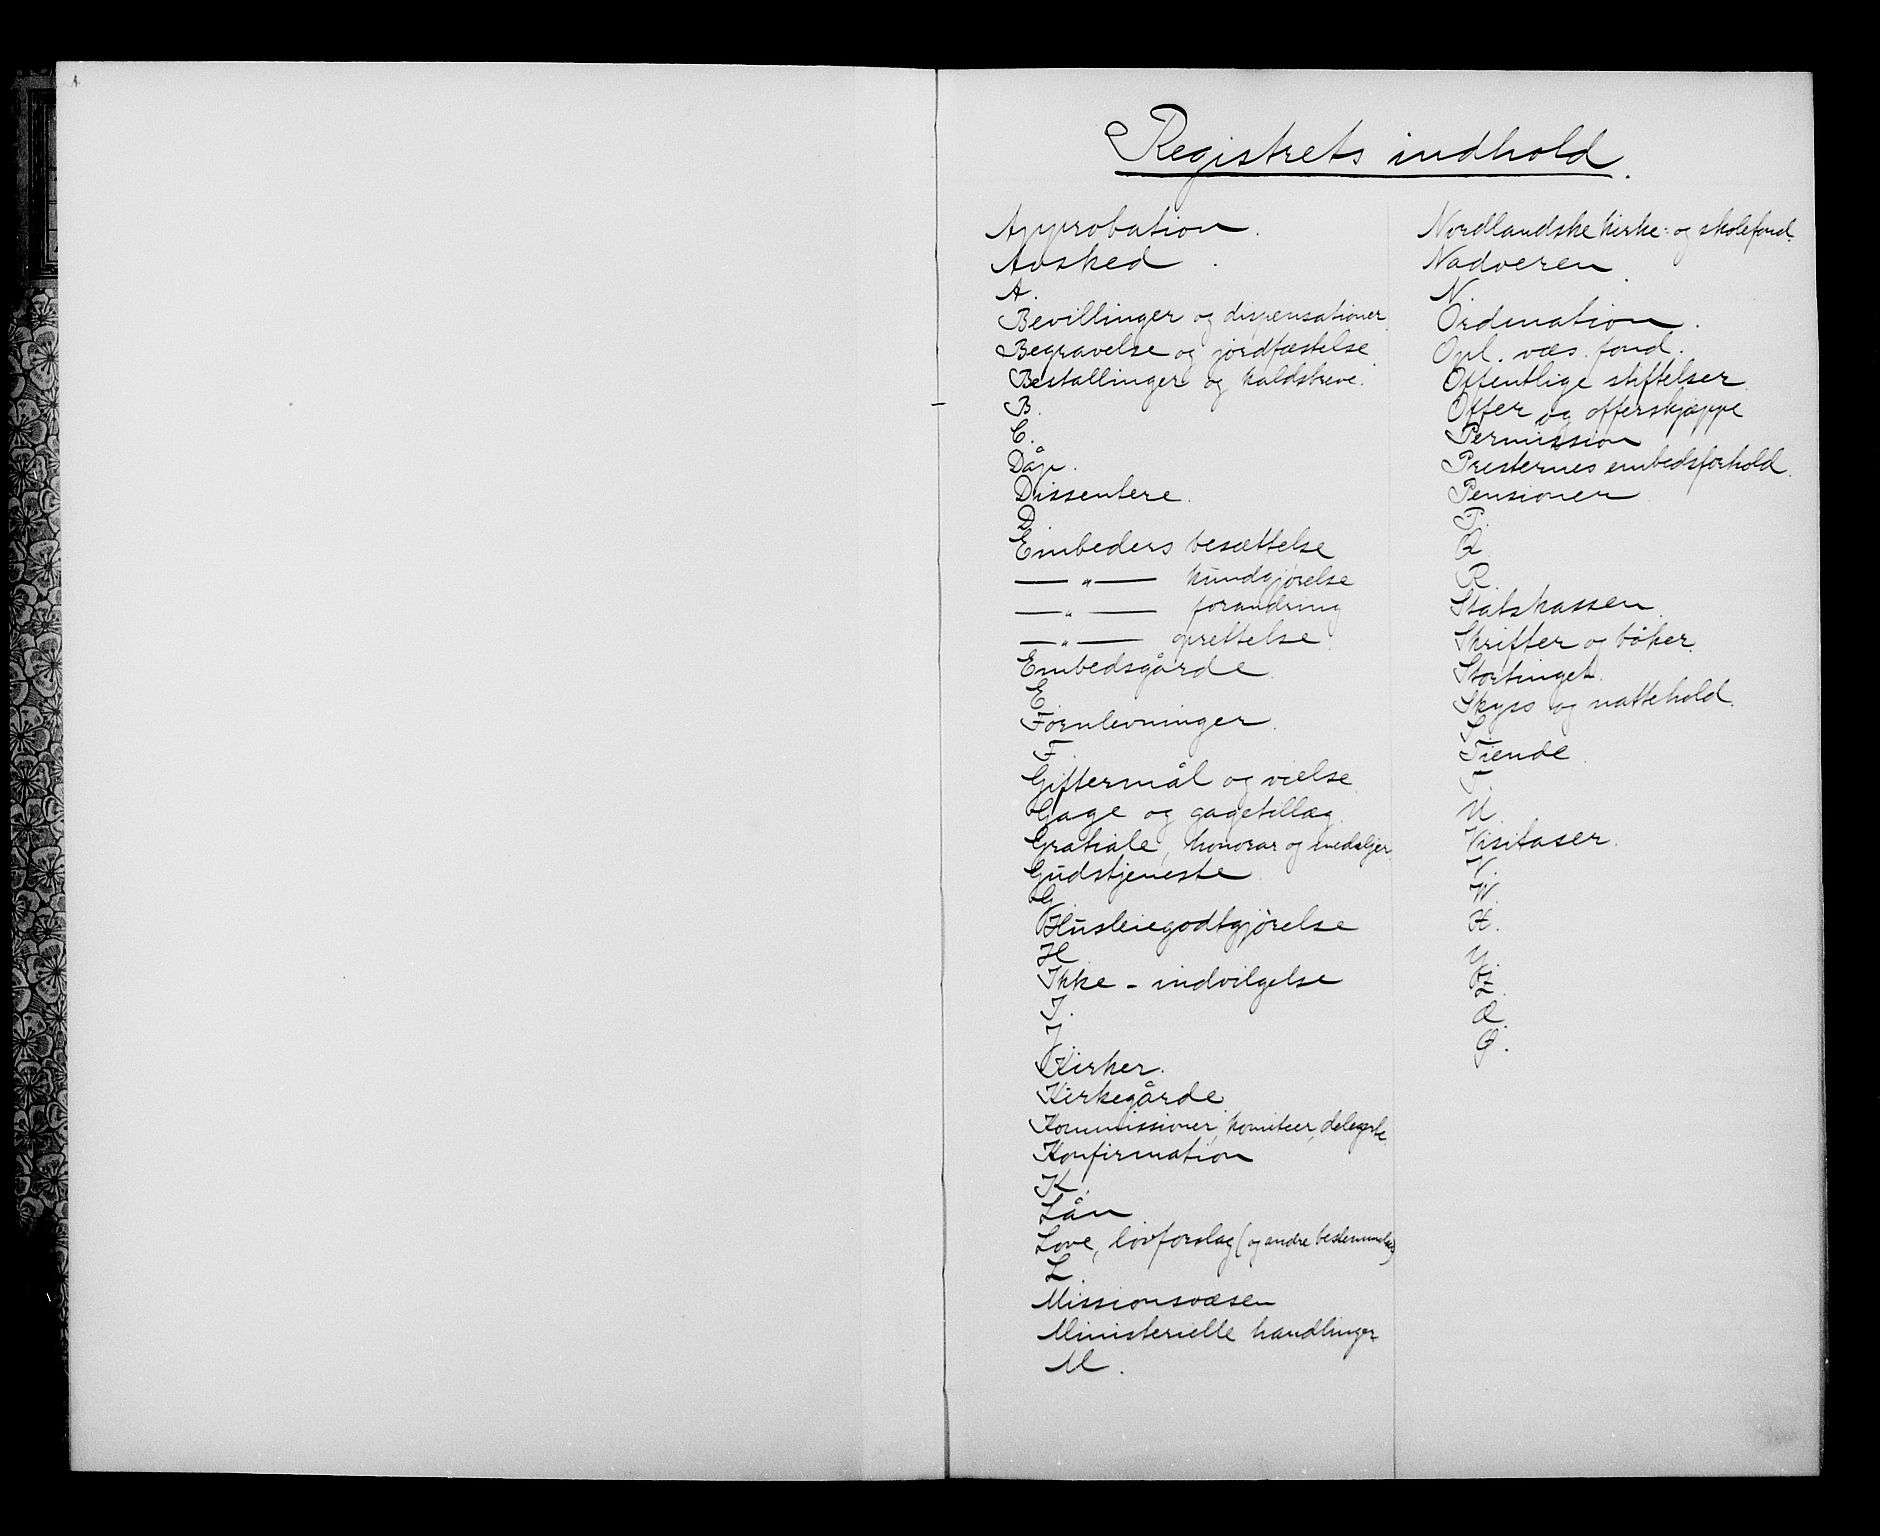 Registrets indhold.
Approbation.
Avsked.
A.
Bevillinger og dispensationer.
Begravelse og jordfæstelse.
Bestallinger og kaldsbreve.
B.
C.
Dåp.
Dissentere.
D.
Embeders besættelse
—„— kundgjørelse
—„— forandring
—„— oprettelse.
Embedsgårde.
E.
Fornlevninger.
F.
Giftermål og vielse.
Gage og gagetillæg.
Gratiale, honorar og medaljer.
Gudstjeneste.
G.
Husleiegodtgjørelse
H.
Ikke-indvilgelse
I.
J.
Kirker.
Kirkegårde.
Kommissioner, komiteer, delegerte.
Konfirmation
K.
Lån
Love, lovforslag (og andre bestemmelser)
L.
Missionsvæsen
Ministerielle handlinger
M.
Nordlandske kirke- og skolefond.
Nadveren.
N.
Ordination.
Opl. væs. fond.
Offentlige stiftelser.
Offer og offerskjæppe
Permission
Presternes embedsforhold.
Pensioner.
P.
Q.
R.
Statskassen.
Skrifter og bøker.
Stortinget.
Skyss og nattehold.
S.
Tiende.
T.
U.
Visitaser.
V.
W.
X.
Y.
Z.
Æ.
Ø.